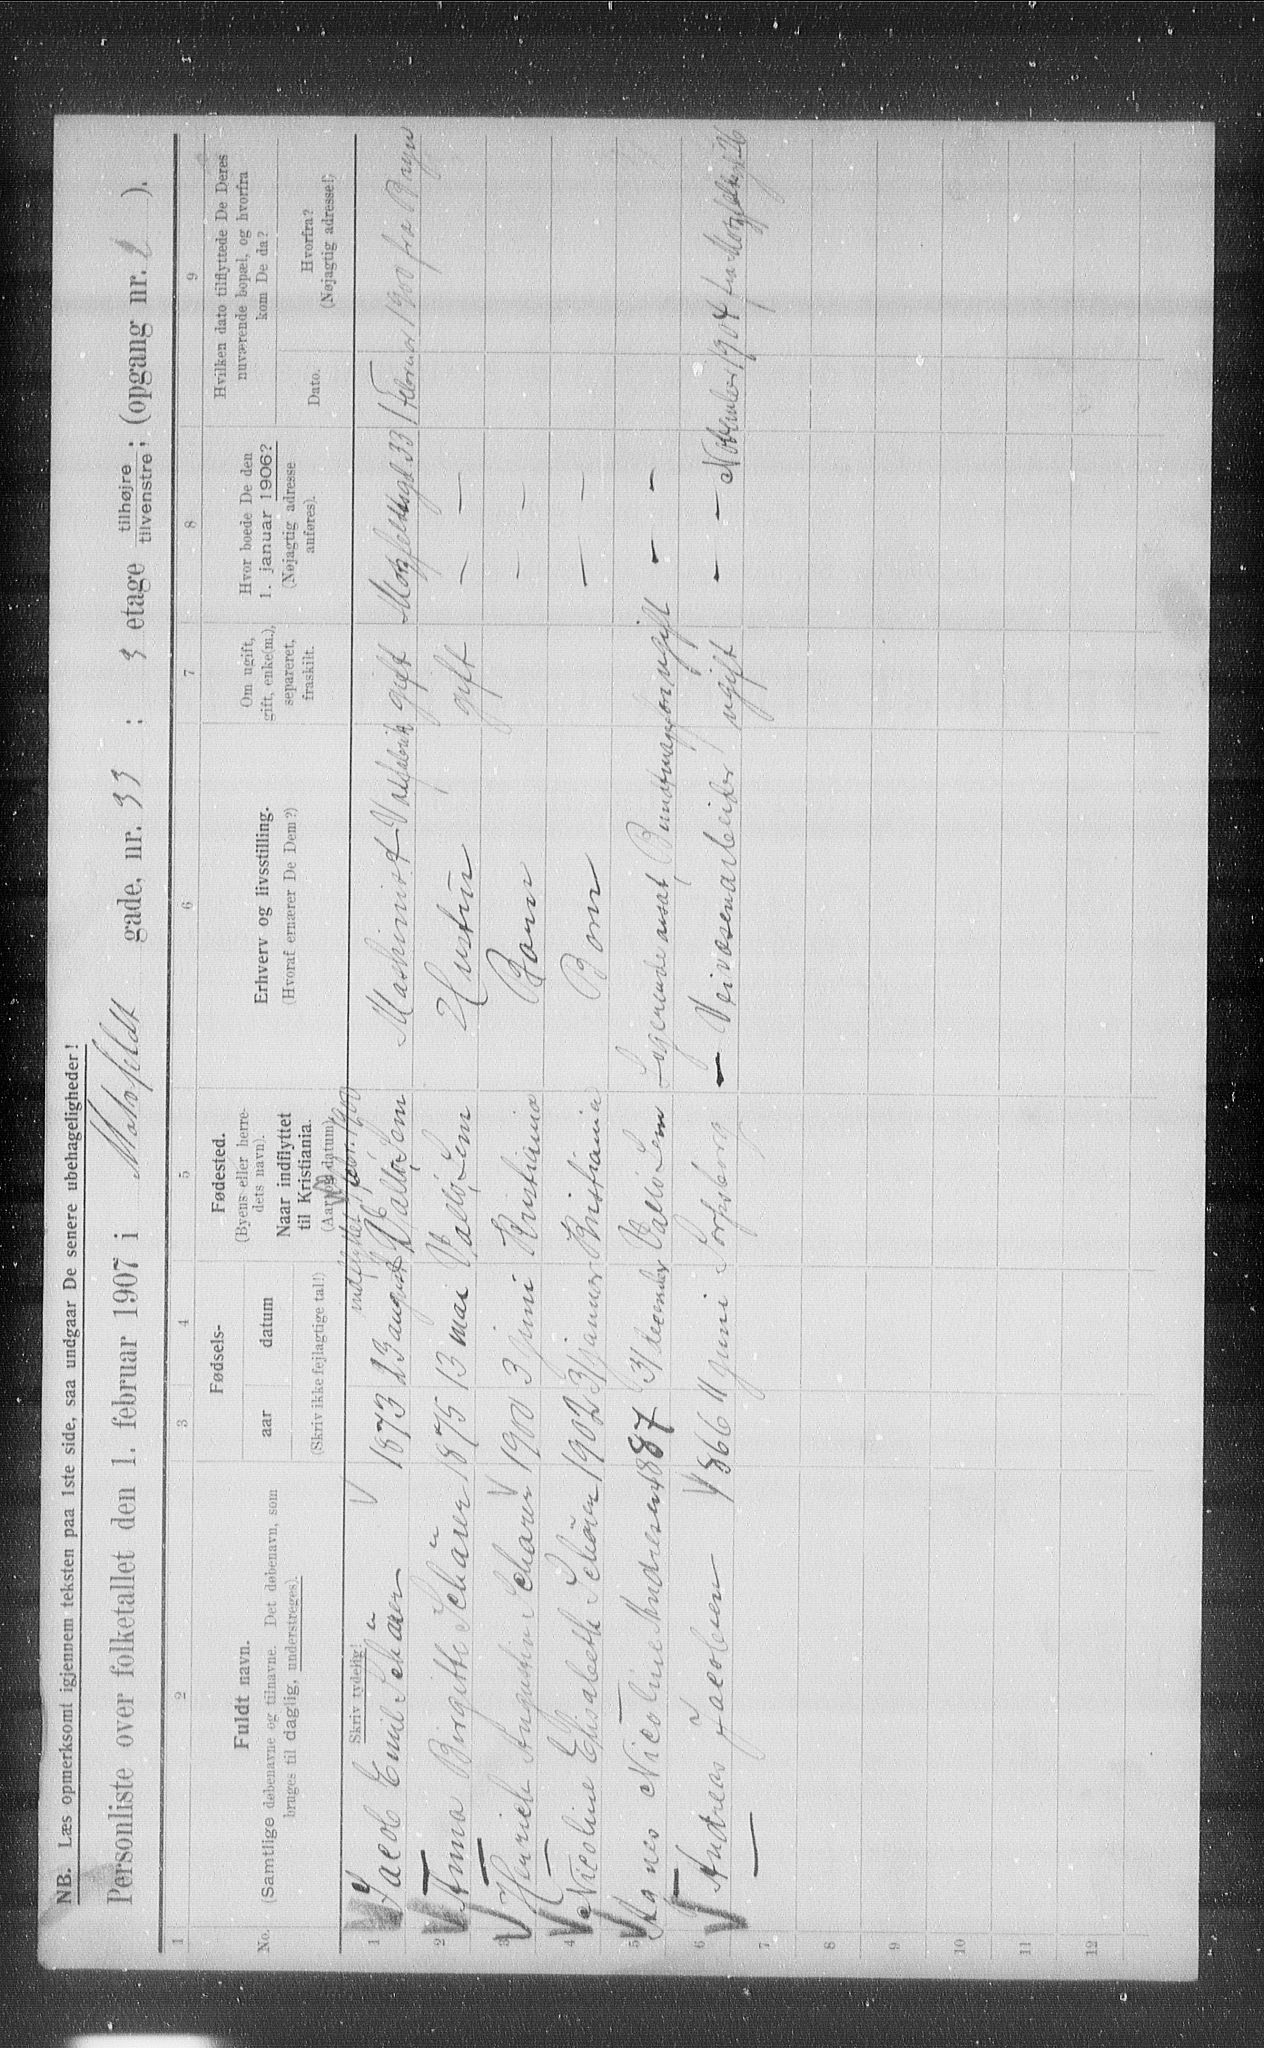 NB. Læs opmerksomt igjennem teksten paa 1ste side, saa undgaar De senere ubehageligheder!
Personliste over folketallet den 1. februar 1907 i Motzfeldt gade, nr. 33; 3 etage tilhøjre / tilvenstre; (opgang nr. ).
1 2 3 4 5 6 7 8 9
No.
Fuldt navn.
(Samtlige døbenavne og tilnavne. Det døbenavn, som
bruges til daglig, understreges).
Skriv tydelig!
Fødsels-
aar datum
(Skriv ikke fejlagtige tal!)
Fødested.
(Byens eller herre-
dets navn).
Naar indflyttet
til Kristiania.
(Aar og datum).
Erhverv og livsstilling.
(Hvoraf ernærer De Dem?)
Om ugift,
gift, enke(m.),
separeret,
fraskilt.
Hvor boede De den
1. januar 1906?
(Nøjagtig adresse
anføres).
Hvilken dato tilflyttede De Deres
nuværende bopæl, og hvorfra
kom De da?
Dato.
Hvorfra?
(Nøjagtig adresse!)
indflyttet febr. 1900
1 Jacob Emil Schärer 1873 23 august Vallö Sem Maskinist gift Motzfeldtsgd 33 1 Februar 1900 fra Bryn
2 Anna Birgitte Schärer 1875 13 mai Vallö Sem Hustru gift — —
3 Henrich Augustin Schärer 1900 3 juni Kristiania Barn — —
4 Nicoline Elisabeth Schärer 1902 31 januar Kristiania Barn — —
5 Agnes Nicoline Andresen 1887 31 december Vallö Sem Logerende ansat Buntmager ugift — —
6 Andreas Jacobsen 1866 11 juni Sarpsborg — Veivæsenarbeider ugift — — November 1904 fra Motzfeldtsgt
7
8
9
10
11
12